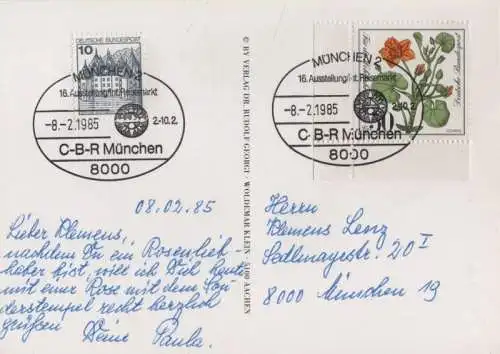 DEUTSCHE BUNDESPOST
10
MÜNCHEN 2
16. Ausstellung f. int. Reisemarkt
-8.-2.1985
2-10.2.
C-B-R München
8000
© BY VERLAG DR. RUDOLF GEORGI · WOLDEMAR KLEIN · 5100 AACHEN
MÜNCHEN 2
16. Ausstellung f. int. Reisemarkt
-8.-2.1985
2-10.2.
C-B-R München
8000
Deutsche Bundespost
08.02.85
Lieber Klemens,
nachdem Du ein Rosenlieb-
haber bist, will ich Dich heute
mit einer Rose mit dem Son-
derstempel recht herzlich
grüßen
Deine Paula.
Herrn
Klemens Lenz
Sedlmayrstr. 20 I
8000 München 19